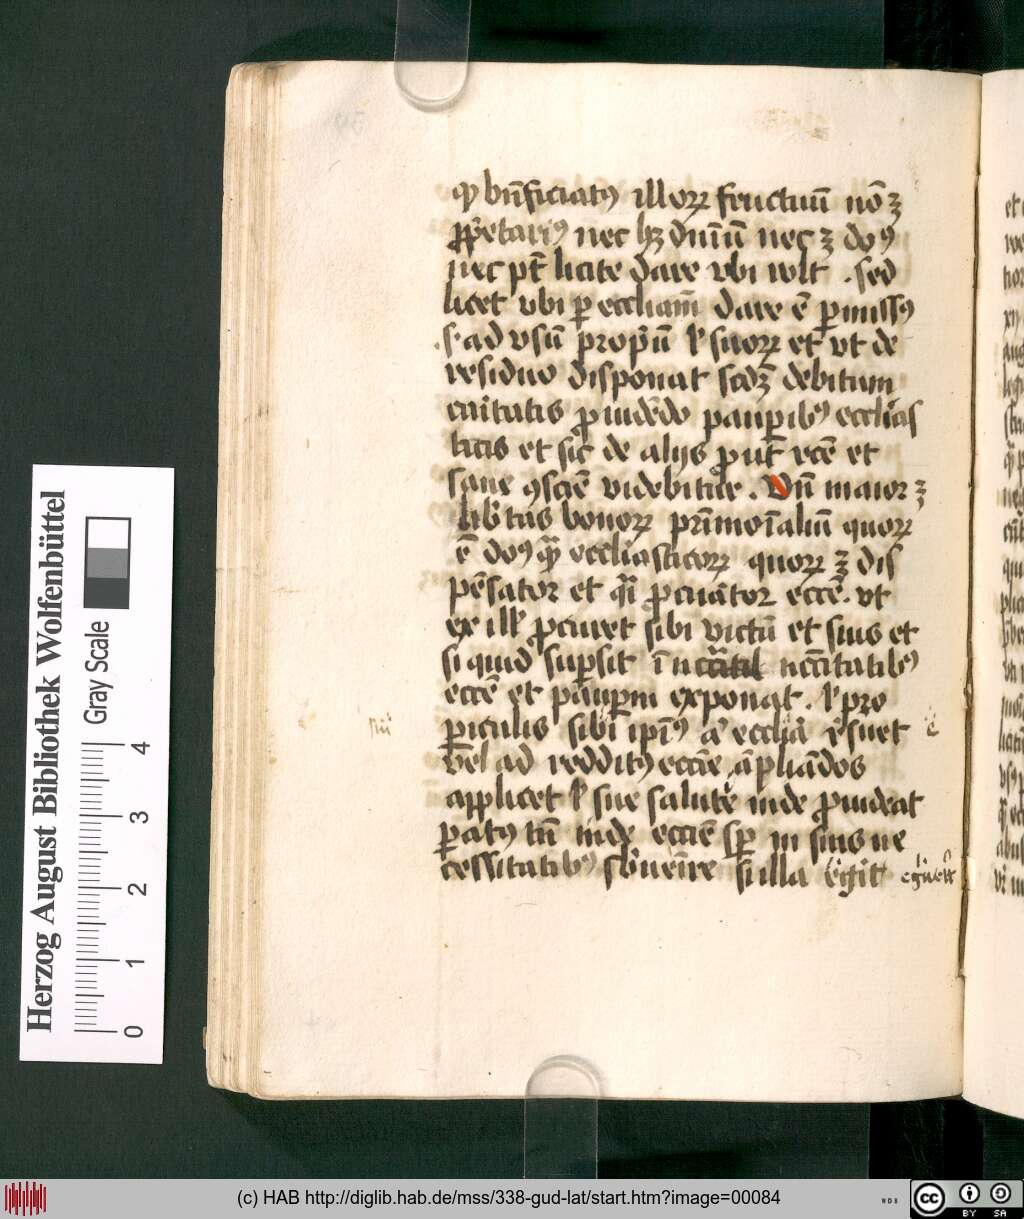 qp̄ bn̄ficiatꝯ illoꝝ fructuū nō ꝫ
ꝓp̄etariꝯ nec hꝫ dn̄iū nec ꝫ doꝯ
nec pt̄ licite dare vbi wlt . sed
licet vbi ꝑ eccliam̄ dare ē ꝑmissꝯ
.s. ad vsū propriū ł suoꝝ et vt de
residuo disponat scdꝫ debitum
caitatis ꝓuidēdo pauꝑibꝯ ecclīas
ticis et sic de alijs ꝓut rcē et
sane ꝯscīe videbitur . Vn̄ maior ꝫ
libˀtas bonoꝝ pr̄imoīaliū quoꝝ
ē doꝯ qꝫ ecclīasticoꝝ quoꝝ ꝫ dis
pēsator et qī ꝓcuātor eccē . vt
ex ill' ꝓcuret sibi victū et suis et
si quid suꝑsit ī ncc̄itatibꝯ
eccē et pauꝑm exponat . ł pro
ꝑiculis sibi ipīꝯ a ecclīa rˀsuet
vel ad redditꝯ eccīe āpliādos
applicet ł sue salute inde ꝓuideat
ꝑatꝯ tn̄ inde eccīe sꝑ in suis ne
cessitatibꝯ sbˀuenire si illa egˀit
Herzog August Bibliothek Wolfenbüttel
Gray Scale
0 1 2 3 4
(c) HAB http://diglib.hab.de/mss/338-gud-lat/start.htm?image=00084
WDB
cc BY SA